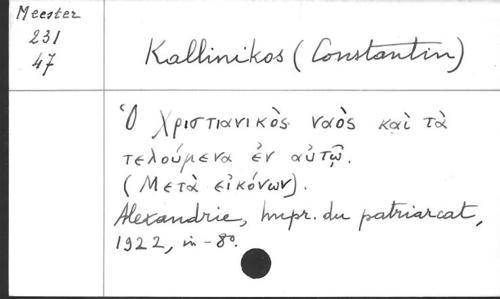 Meester
231
47
Kallinikos (Constantin)
Ὁ Χριστιανικὸς ναὸς καὶ τὰ
τελούμενα ἐν αὐτῷ.
(Μετὰ εἰκόνων).
Alexandrie, Impr. du patriarcat,
1922, in-8º.